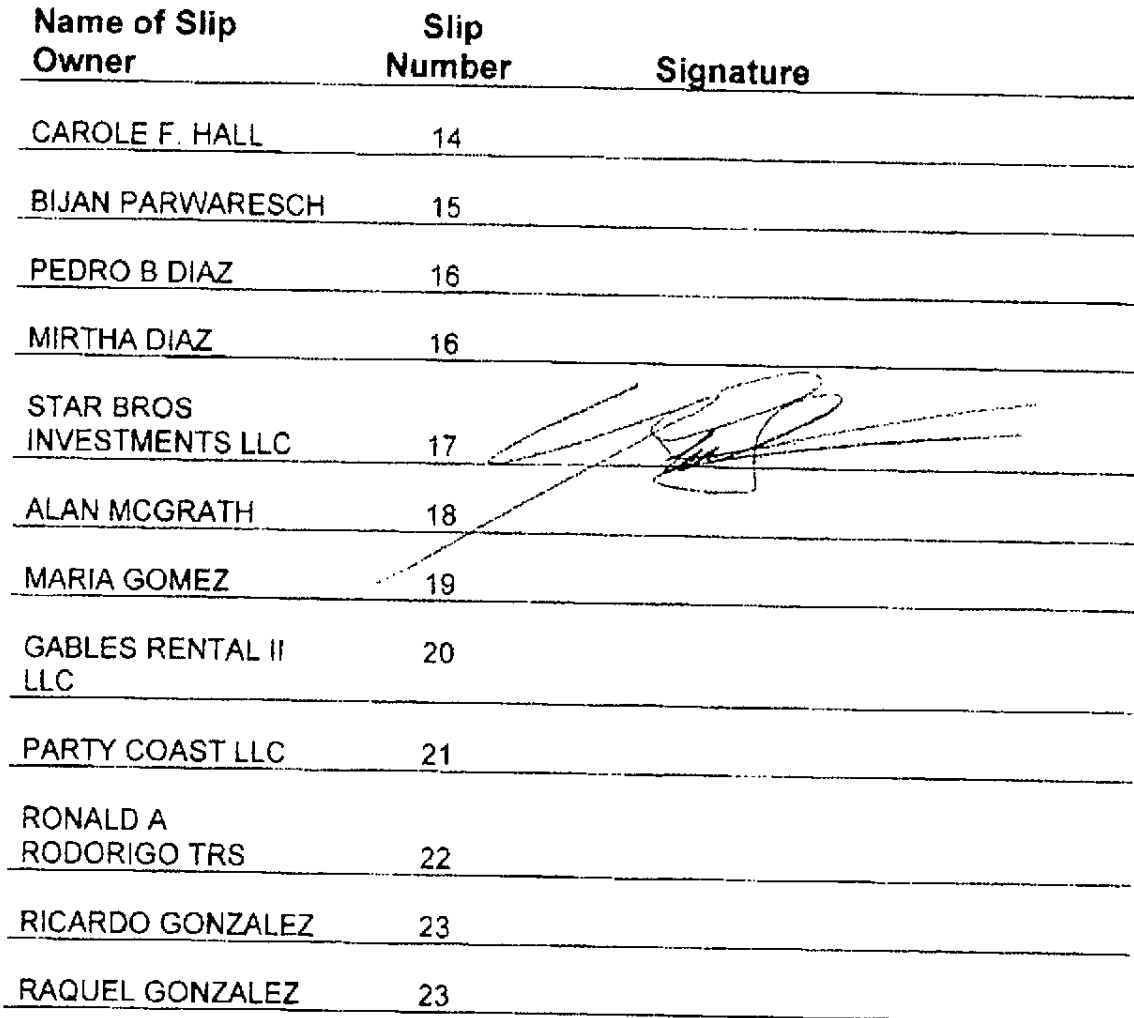 Name of Slip Owner Slip Number Signature
CAROLE F. HALL 14
BIJAN PARWARESCH 15
PEDRO B DIAZ 16
MIRTHA DIAZ 16
STAR BROS
INVESTMENTS LLC 17
ALAN MCGRATH 18
MARIA GOMEZ 19
GABLES RENTAL II 20
LLC
PARTY COAST LLC 21
RONALD A
RODORIGO TRS 22
RICARDO GONZALEZ 23
RAQUEL GONZALEZ 23